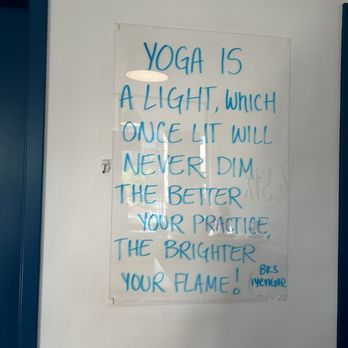 YOGA IS
A LIGHT, WHICH
ONCE LIT WILL
NEVER DIM.
THE BETTER
YOUR PRACTICE,
THE BRIGHTER
YOUR FLAME!
BKS
IYENGAR